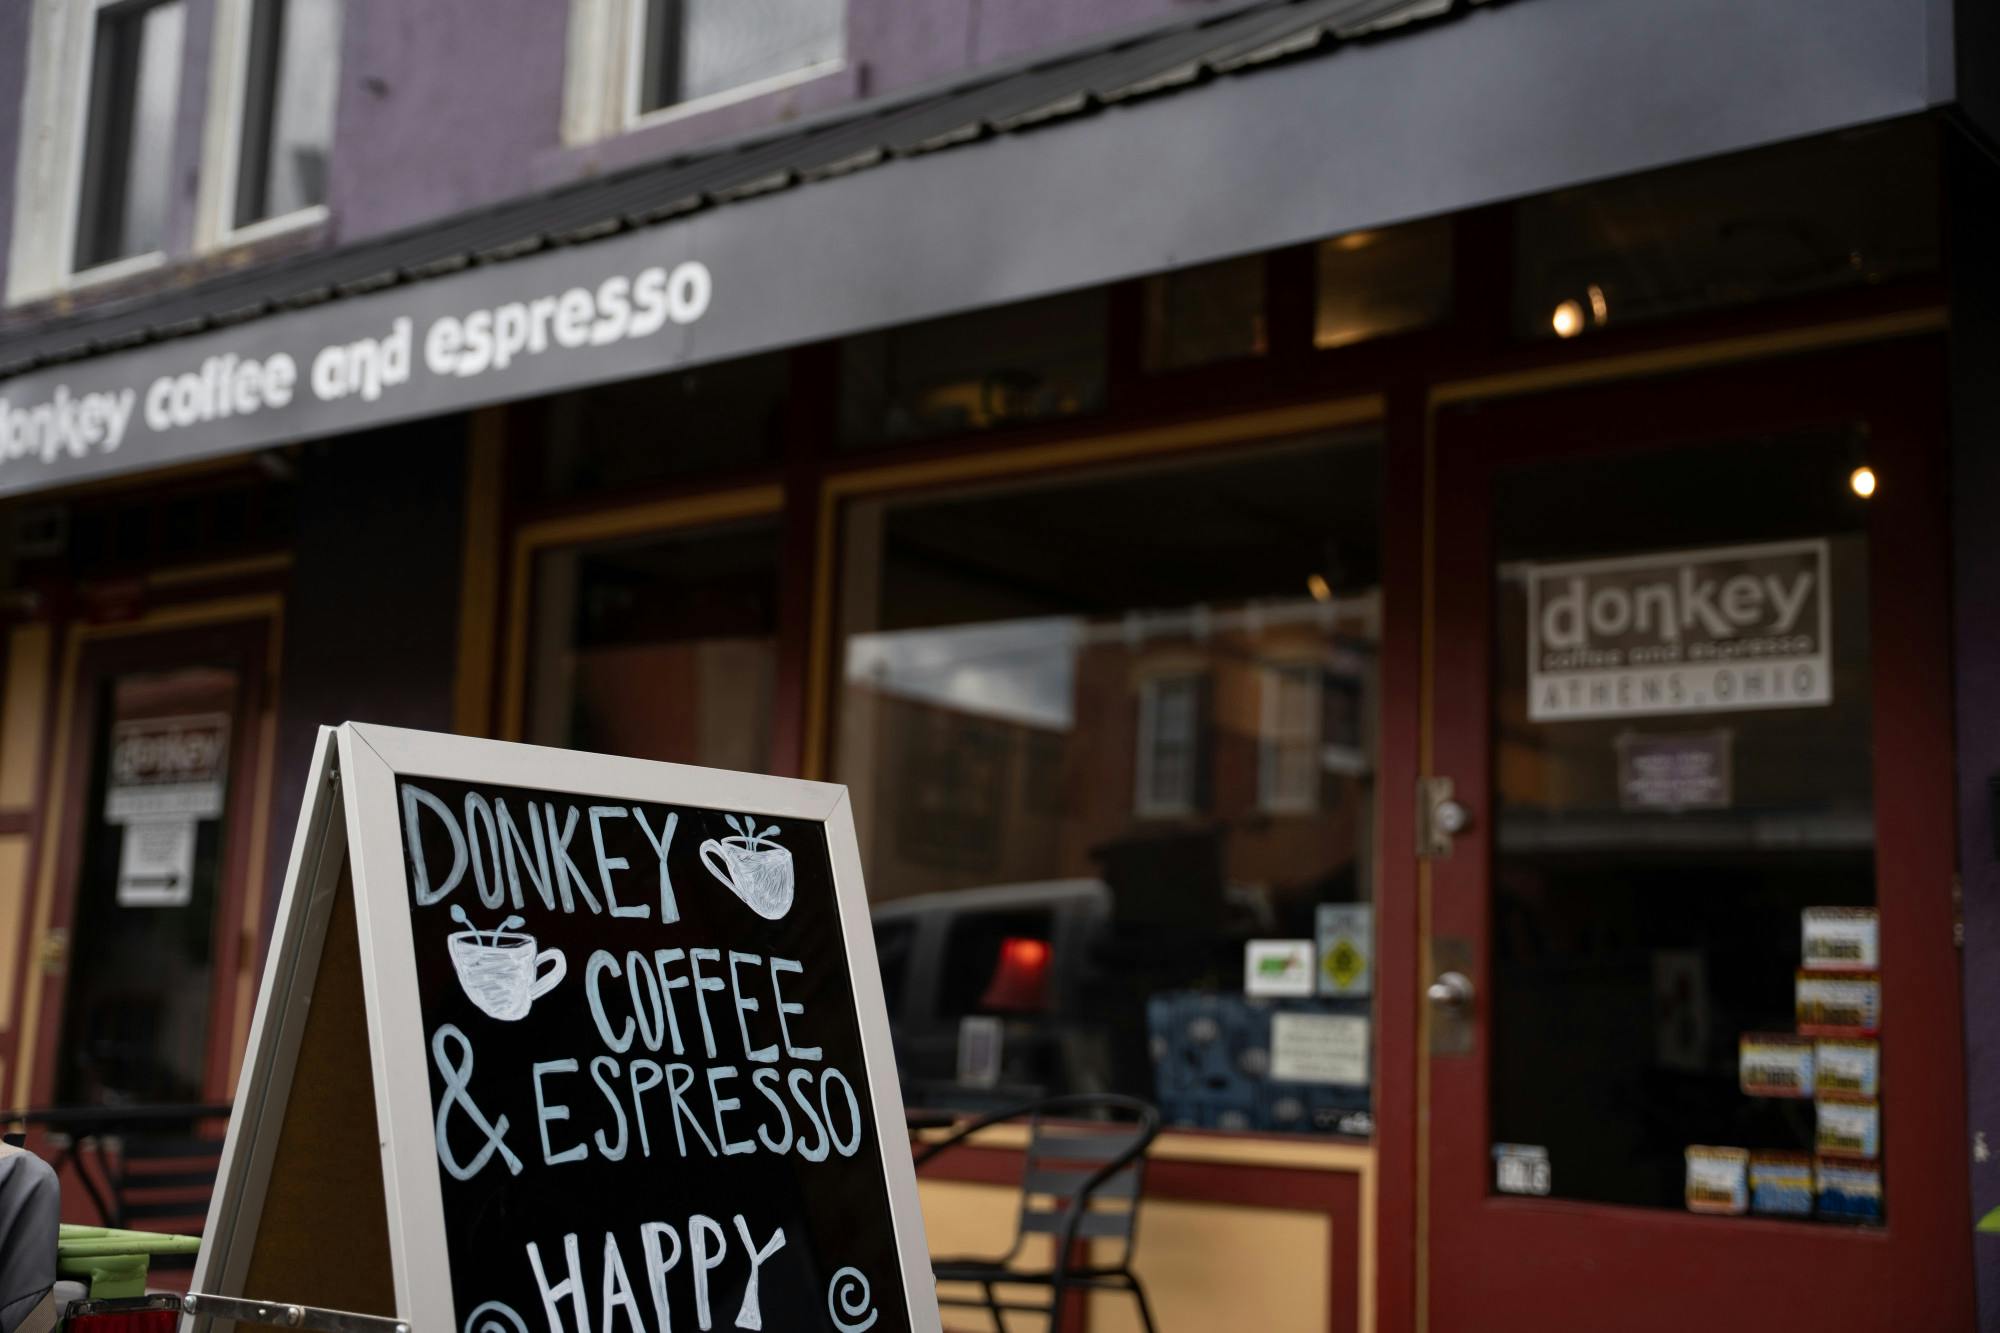 donkey coffee and espresso
donkey
coffee and espresso
ATHENS, OHIO
donkey
DONKEY
COFFEE
& ESPRESSO
HAPPY